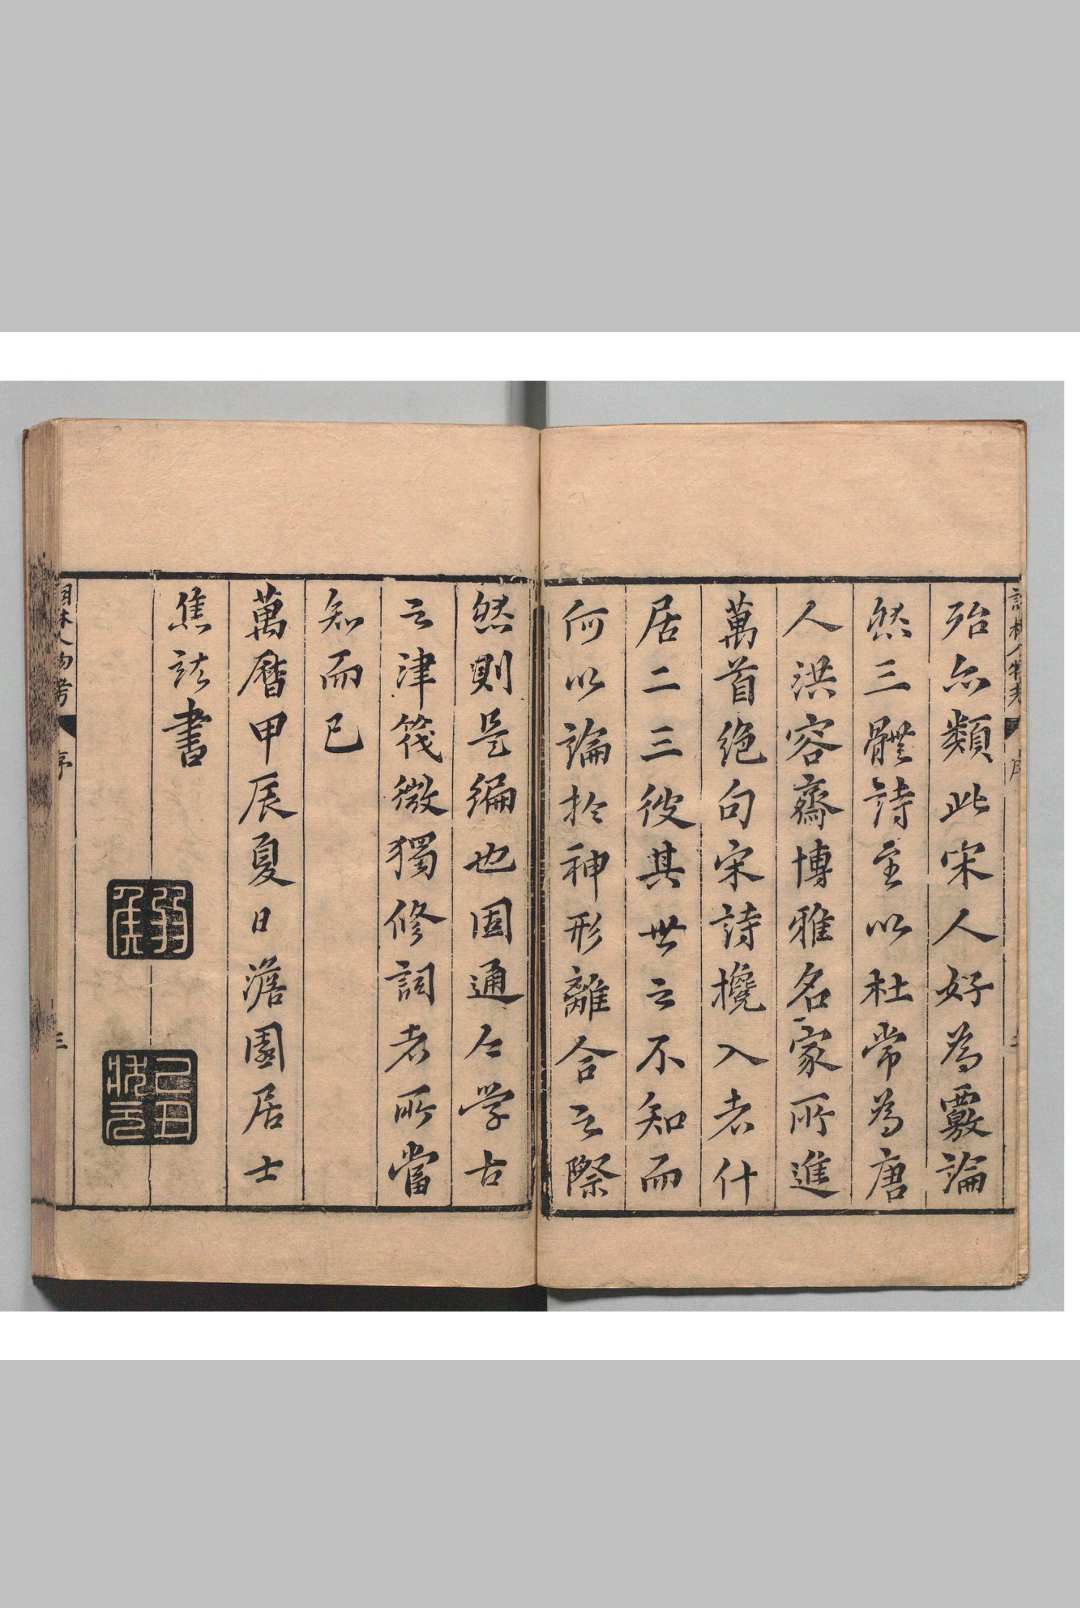 詞林人物考 序
殆亦類此宋人好為覈論
然三體詩至以杜常為唐
人洪容齋博雅名家所進
萬首絶句宋詩攙入者什
居二三彼其世之不知而
何以論於神形離合之際
然則是編也固通今學古
之津筏微獨修詞者所當
知而已
萬曆甲辰夏日澹園居士
焦竑書
弱侯
己丑狀元
詞林人物考 序 三